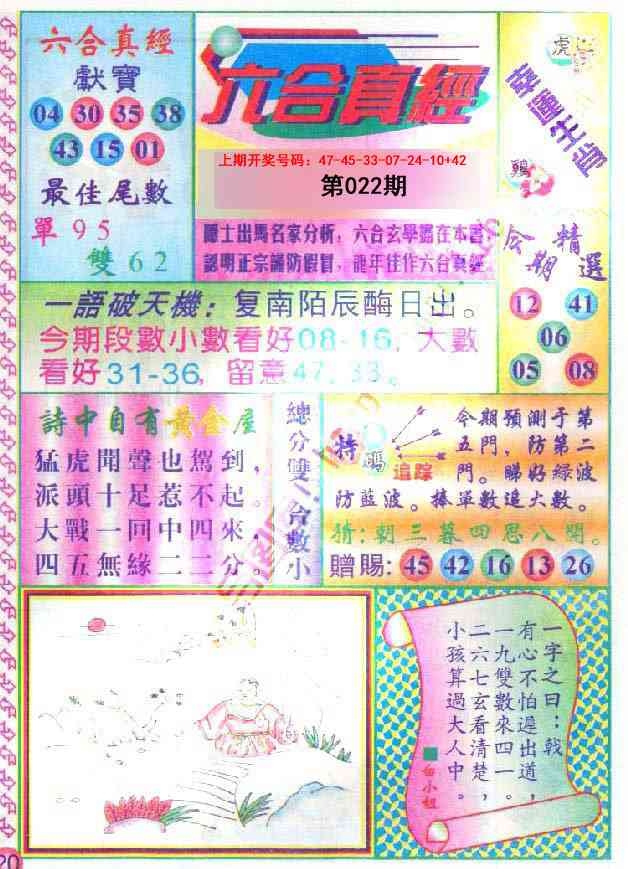 六合真經
獻寶
04 30 35 38
43 15 01
最佳尾數
單95
雙62
六合真經
上期开奖号码：47-45-33-07-24-10+42
第022期
六合玄學盡在本書，
認明正宗謹防假冒，龍年佳作六合真經
虎
鷄
幸運生肖
今期精選
12 41
06
05 08
一語破天機：复南陌辰酶日出。
今期段數小數看好08-16，大數
看好31-36，留意47.33。
詩中自有黄金屋
猛虎聞聲也駕到，
派頭十足惹不起。
大戰一回中四來，
四五無緣二二分。
總分雙合數小
特碼
追踪
今期預測于第
五門，防第二
門。睇好緑波
防藍波。捧單數追大數。
猜:朝三暮四思八開。
贈賜: 45 42 16 13 26
一字之曰：戟
有心不怕遲出道，
一九雙數來四一。
二六七玄看清楚，
小孩算過大人中。
■白小姐
20